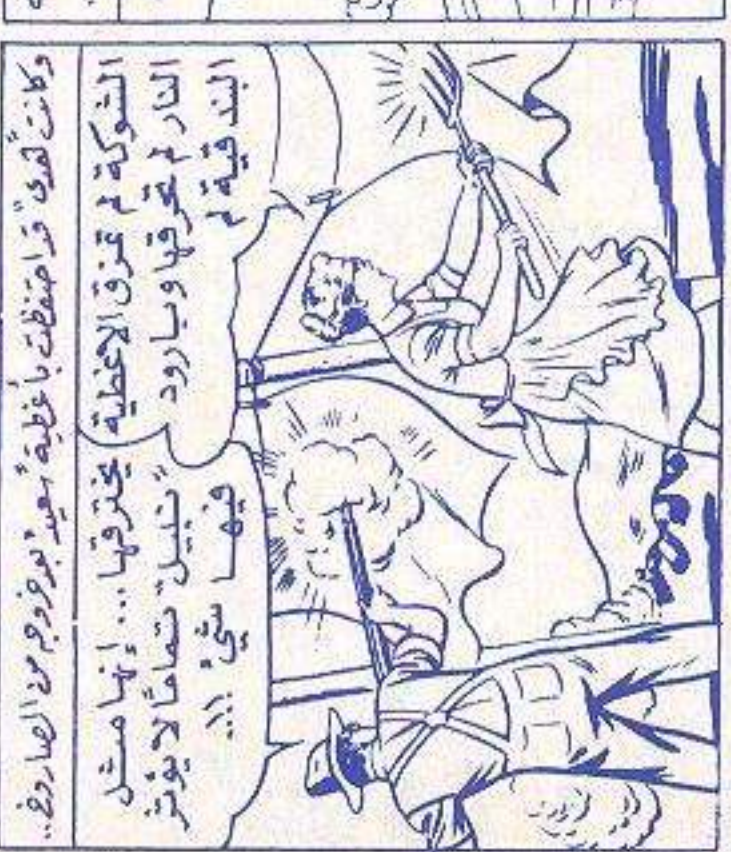 وكانت "هدى" قد احتفظت بأغطية "سعيد" بعد خروجه من الصاروخ..
الشوكة لم تمزق الاغطية
النار لم تحرقها وبارود
البندقية لم
يخترقها... إنها مثل
"نبيل" تماماً لا يؤثر
فيها شيء !!..